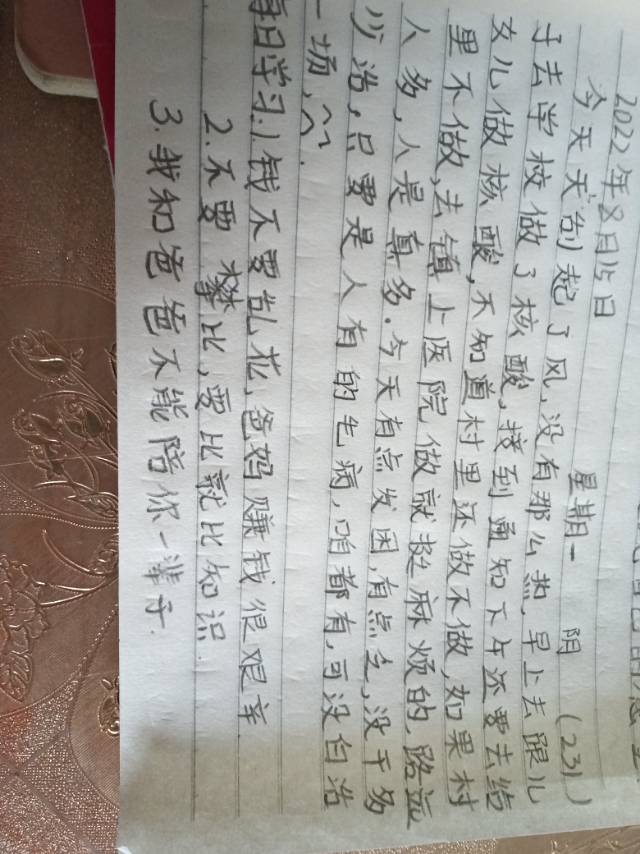 2022年8月15日 星期一 阴 (231)
今天天刮起了风,没有那么热,早上去跟儿
子去学校做了核酸,接到通知下午还要去给
女儿做核酸,不知道村里还做不做,如果村
里不做,去镇上医院做就挺麻烦的,路远
人多,人是真多.今天有点发困,有点乏,没干多
少活,只要是人有的生病,咱都有,可没白活
一场,
每日学习:1.钱不要乱花,爸妈赚钱很艰辛
2.不要攀比,要比就比知识.
3.我和爸爸不能陪你一辈子.